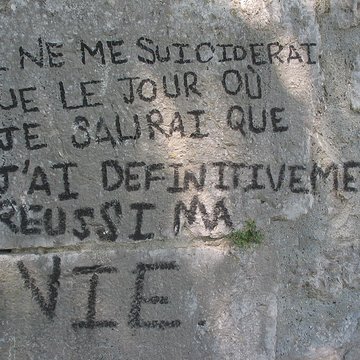 NE ME SUICIDERAI
UE LE JOUR OÙ
JE SAURAI QUE
J'AI DEFINITIVEME
REUSSI MA
VIE.